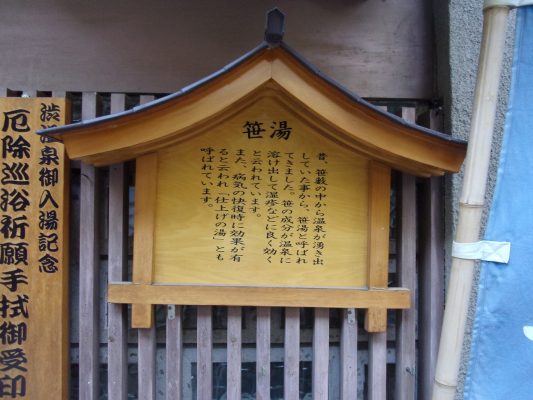 笹湯
昔、笹藪の中から温泉が湧き出
していた事から、笹湯と呼ばれ
てきました。笹の成分が温泉に
溶け出して湿疹などに良く効く
と云われています。
また、病気の快復時に効果が有
ると云われ「仕上げの湯」とも
呼ばれています。
渋温泉御入湯記念
厄除巡浴祈願手拭御受印